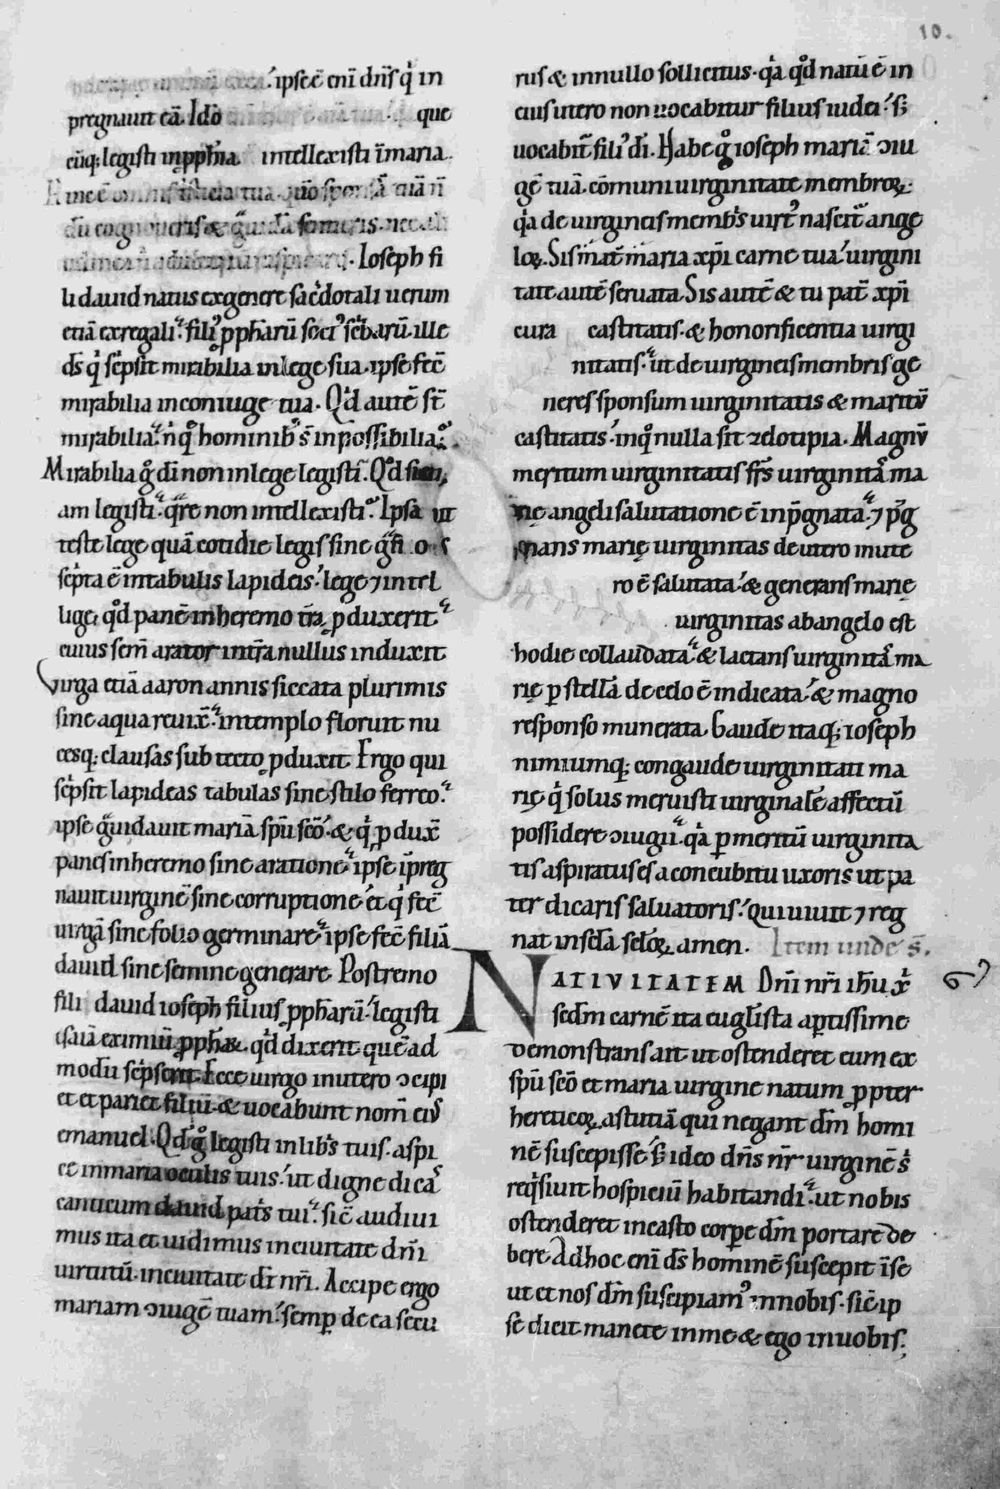 10.
ipse ē eni dn̄s q̇ in
pregnauit eā. Ido que
cūq; legisti in pphia intellexisti ī maria.
Ioseph fi
li dauid natus ex genere sac̄dotali uerum
etiā ex regali. fili᷒ ꝓphārū soci᷒ sc̄barū. ille
ds̄ q̇ sc̄psit mirabilia in lege sua. ipse fec̄
mirabilia in coniuge tua. Qd̄ autē st̄
mirabilia. n̄ q̊ hominib᷒ s̄ inpossibilia.
Mirabilia g̊ di non in lege legisti. Qd̄
am legisti. q̄re non intellexisti. Ipsā ut
teste lege quā cotidie legis sine
sc̄pta ē in tabulis lapideis. lege ⁊ intel
lige. qd̄ panē in heremo t̄ra ꝓduxerit
cuius sem̄ arator intra nullus induxit
Virga etiā aaron annis siccata plurimis
sine aqua reuix̄. in templo floruit nu
cesq; clausas sub tecto ꝓduxit Ergo qui
sc̄psit lapideas tabulas sine stilo ferreo.
ipse g̊uidauit mariā sp̄u sc̄o. & q̇ ꝓdux̄
panes in heremo sine aratione. ipse īpreg
nauit uirginē sine corruptione. et q̇ fec̄
uirgā sine folio germinare. ipse fec̄ filiā
dauid sine semine generare Postremo
fili dauid ioseph filius ꝓphārū. legisti
isaiā eximiū ꝓphā. qd̄ dixerit quē ad
modū sc̄pserit. Ecce uirgo in utero ↄcipi
et et pariet filiū. & uocabunt nom̄ ei᷒
emanuel. Qd̄ g̊ legisti in lib̄s tuis. aspi
ce in maria oculis tuis. ut digne dicas
canticum dauid pat̄s tui. sic̄ audiui
mus ita et uidimus in ciuitate dn̄i
uirtutū. in ciuitate di nr̄i. Accipe ergo
mariam ↄiugē tuam. semꝑ de ea secu
rus & in nullo sollicitus. q̇a qd̄ natū ē in
eius utero non uocabitur filius iudei. s;
uocabit̄ fili᷒ di. Habe g̊ ioseph mariā ↄiu
gē tuā. cōmuni uirginitate membroꝝ.
q̇a de uirgineis memb̄s uirt᷒ nascit̄ ange
loꝝ. Sis mat̄ maria xp̄i carne tua. uirgini
tate autē seruata. Sis autē & tu pat̄ xp̄i
cura castitatis. & honorificentia uirgi
nitatis. ut de uirgineis membris ge
neres sponsum uirginitatis & maritū
castitatis. in q̊ nulla sit zelotipia. Magnū
meritum uirginitatis fr̄s uirginitas ma
rię angeli salutatione ē inp̄gnata. ⁊ p̄g
nans marię uirginitas de utero mute
ro ē salutata. & generans marię
uirginitas ab angelo est
hodie collaudata. & lactans uirginitas ma
rię ꝑ stellā de celo ē indicata. & magno
responso munerata. Gaude itaq; ioseph
nimiumq; congaude uirginitati ma
rię q̇ solus meruisti uirginalē affectū
possidere ↄiugii. q̇a ꝑ meritū uirginita
tis aspiratus es a concubitu uxoris ut pa
ter dicaris saluatoris. Qui uiuit ⁊ reg
nat in sc̄la sc̄loꝝ amen. Item unde s̄.
NATIVITATEM Dn̄i nr̄i ih̄u x̄
sedm̄ carnē ita euglista aptissime
demonstrans ait ut ostenderet eum ex
sp̄u sc̄o et maria uirgine natum ꝓpter
hereticoꝝ astutiā qui negant dm̄ homi
nē suscepisse. s; ideo dn̄s nr̄ uirginē s̄
req̇siuit hospiciū habitandi. ut nobis
ostenderet in casto corꝑe dm̄ portare de
bere. Adhoc eni ds̄ hominē suscepit in se
ut et nos dm̄ suscipiam᷒ in nobis. sic̄ ip
se dicit manete in me & ego in uobis.